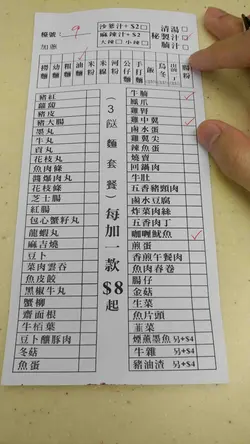 檯號：59
加底
沙爹汁+$2
麻辣汁+$2
大辣 小辣
清湯
秘製汁
腩汁
撈麵
幼麵
粗麵
油麵
米粉
米線
河粉
公仔麵
飯
烏冬
腸粉
(3餸麵套餐)每加一款$8起
豬紅
蘿蔔
豬皮
豬大腸
墨丸
牛丸
貢丸
花枝丸
魚肉條
醬爆肉丸
花枝條
芝士腸
紅腸
包心蟹籽丸
龍蝦丸
麻吉燒
豆卜
菜肉雲吞
魚皮餃
黑椒牛丸
蟹柳
齋面根
牛栢葉
豆卜釀豚肉
冬菇
魚蛋
牛腩
鳳爪
雞腎
雞中翼
鹵水蛋
辣尖魚蛋
燒賣
回鍋肉
牛肚
五香豬頸肉
鹵水豆腐
炸菜肉絲
五香肉丁
咖喱魷魚
煎蛋
香煎午餐肉
魚肉春卷
腸仔
金菇
生菜
魚片頭
韮菜
煙薰墨魚 另+$4
牛雜 另+$4
豬油渣 另+$4